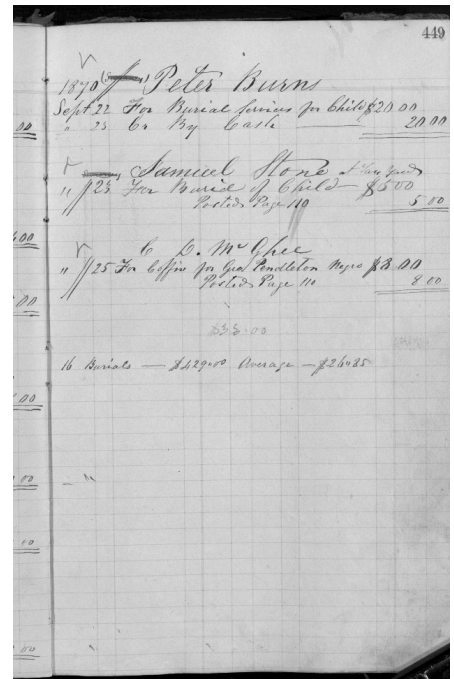 449
1870 Peter Burns
Sept 22 For Burial Services for Child $20 00
" 23 Cr By Cash 20 00
Samuel Stone
" 23 For Burial of Child $5 00
Posted Page 110 5 00
C D. McGhee
" 25 For Coffin for Geo Pendleton Negro $8 00
Posted Page 110 8 00
$33.00
16 Burials — $429.00 Average — $26.85
00
00
00
00
00
00
00